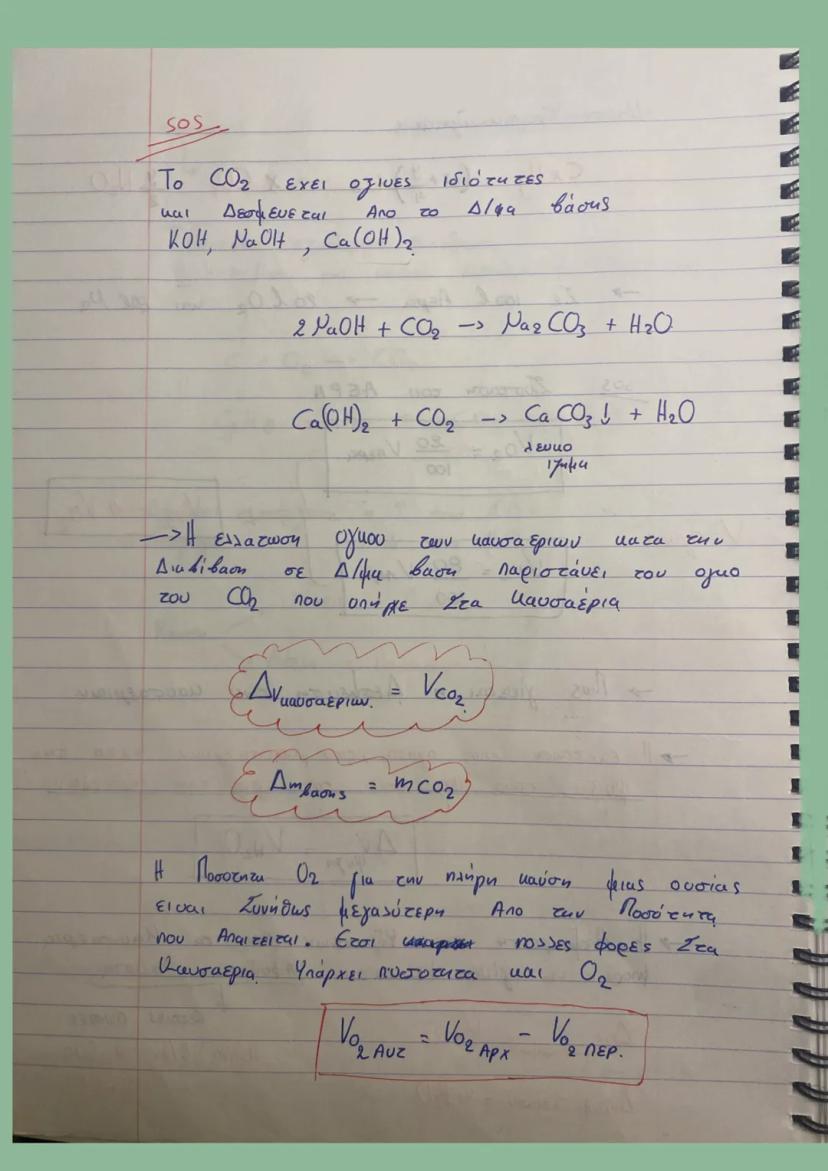 SOS
Το CO2 εχει οξινες ιδιότητες
και Δεσμευεται Απο το Δ/μα βάσης
KOH, NaOH, Ca(OH)2
2NaOH + CO2 → Na2CO3 + H2O
Ca(OH)2 + CO2 → CaCO3↓ + H2O
λευκο
ιζημα
→ Η ελλατωση ογκου των καυσαεριων κατα την
Διαβίβαση σε Δ/μα βαση παριστάνει τον ογκο
του CO2 που υπήρχε Στα Καυσαέρια
ΔVκαυσαεριων. = VCO2
Δmβασης = mCO2
Η Ποσοτητα O2 για την πλήρη καύση μιας ουσίας
ειναι Συνήθως μεγαλύτερη Απο την Ποσότητα
που Απαιτειται. Ετσι πολλες φορες Στα
Καυσαερια Υπάρχει ποσοτητα και O2
VO2 ΑντιΔ = VO2 ΑΡΧ - VO2 ΠΕΡ.